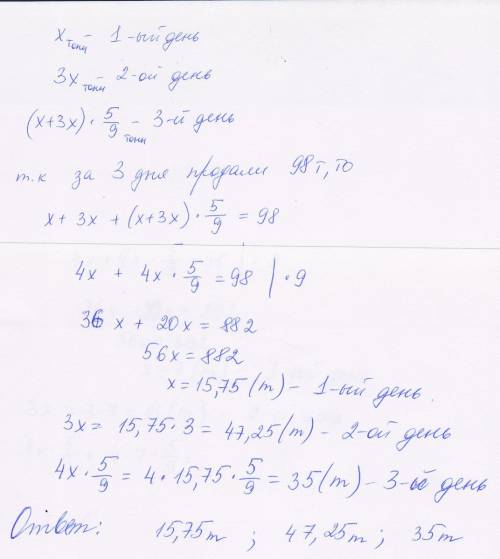 x тонн – 1-ый день
3x тонн – 2-ой день
(x+3x) · 5/9 тонн – 3-й день
т.к за 3 дня продали 98т, то
x + 3x + (x+3x) · 5/9 = 98
4x + 4x · 5/9 = 98 | · 9
36 x + 20x = 882
56x = 882
x = 15,75 (т) – 1-ый день.
3x = 15,75 · 3 = 47,25 (т) – 2-ой день
4x · 5/9 = 4 · 15,75 · 5/9 = 35 (т) – 3-й день
Ответ: 15,75т ; 47,25т ; 35т